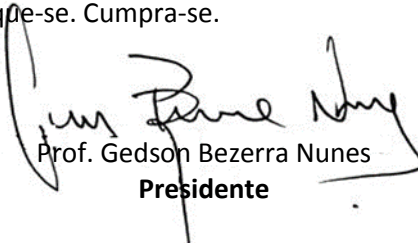 que-se. Cumpra-se.
Prof. Gedson Bezerra Nunes
Presidente